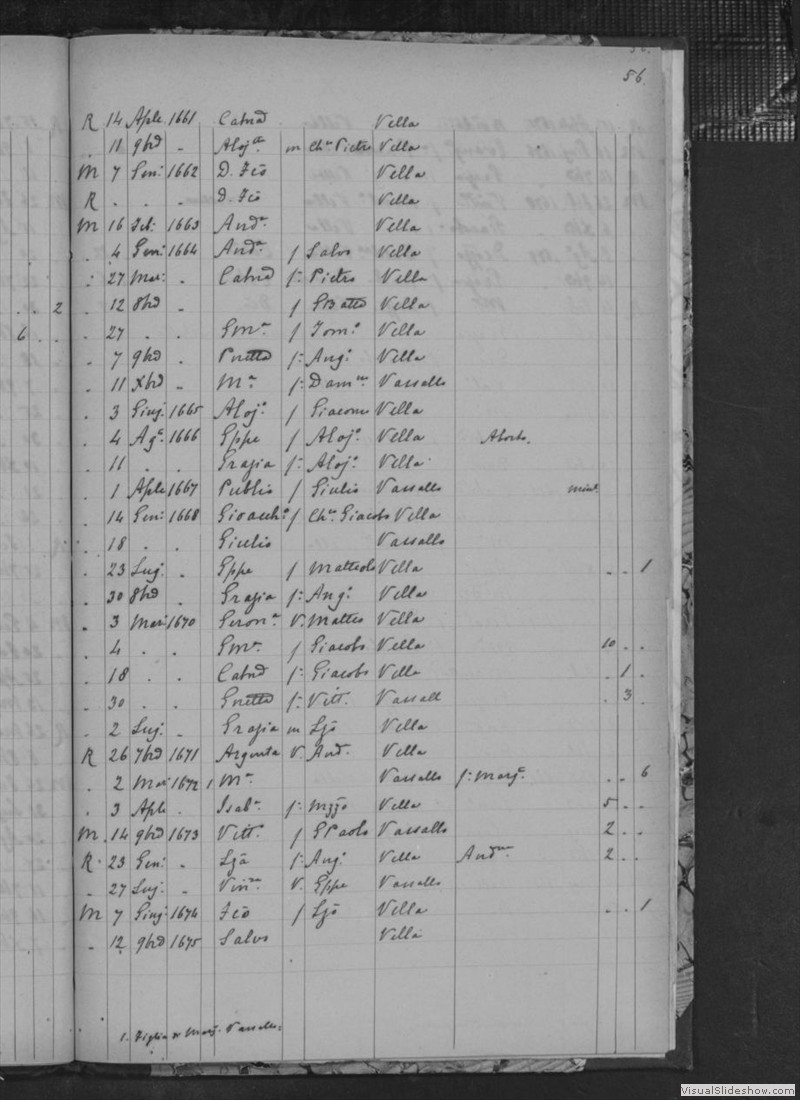 56.
R 14 Aple 1661 Catnd Vella
. 11 9bd . Aloj m Chr Pietro Vella
M 7 Gen: 1662 D. Fco Vella
R . . . D. Fco Vella
M 16 Feb: 1663 Anda Vella
. 4 Gen: 1664 Anda f Salvo Vella
. 27 Mar: . Catnd f: Pietro Vella
. . 2 . 12 8bd f GBatta Vella
6 . . . 27 . . Gma f Tomo Vella
. 7 9bd . f: Ango Vella
. 11 Xbd . Ma f: Vassallo
. 3 Giug 1665 Alojo f Giacomo Vella
. 4 Ago 1666 Gppe f Alojo Vella Aborto.
. 11 . . Grazia f: Alojo Vella
. 1 Aple 1667 Publio f Giulio Vassallo
. 14 Gen: 1668 Gioaccho f Chr Giacobo Vella
. 18 . . Giulio Vassallo
. 23 Lug. . Gppe f Matteolo Vella . . 1
. 30 8bd . Grazia f: Ango Vella
. 3 Mar: 1670 Gerona V. Matteo Vella
. 4 . . Gma f Giacobo Vella 10 . .
. 18 . . Catnd f: Giacobo Vella . 1 .
. 30 . . f: Vitt. Vassall . 3 .
. 2 Lug. . Grazia m Lzo Vella
R 26 7bd 1671 Argenta V. And. Vella
. 2 Mar 1672 1 Ma Vassallo f: Marg. . . 6
. 3 Aple . Isaba f: Mzzo Vella 5 . .
M . 14 9bd 1673 Vitt. f GPaolo Vassallo 2 . .
R . 23 Gen: . Lza f: Ango Vella 2 . .
. 27 Lug. . V. Gppe Vassallo
M 7 Giug 1674 Fco f Lzo Vella . . 1
. 12 9bd 1675 Salvo Vella
1. Figlia di Marg. Vassallo
VisualSlideshow.com